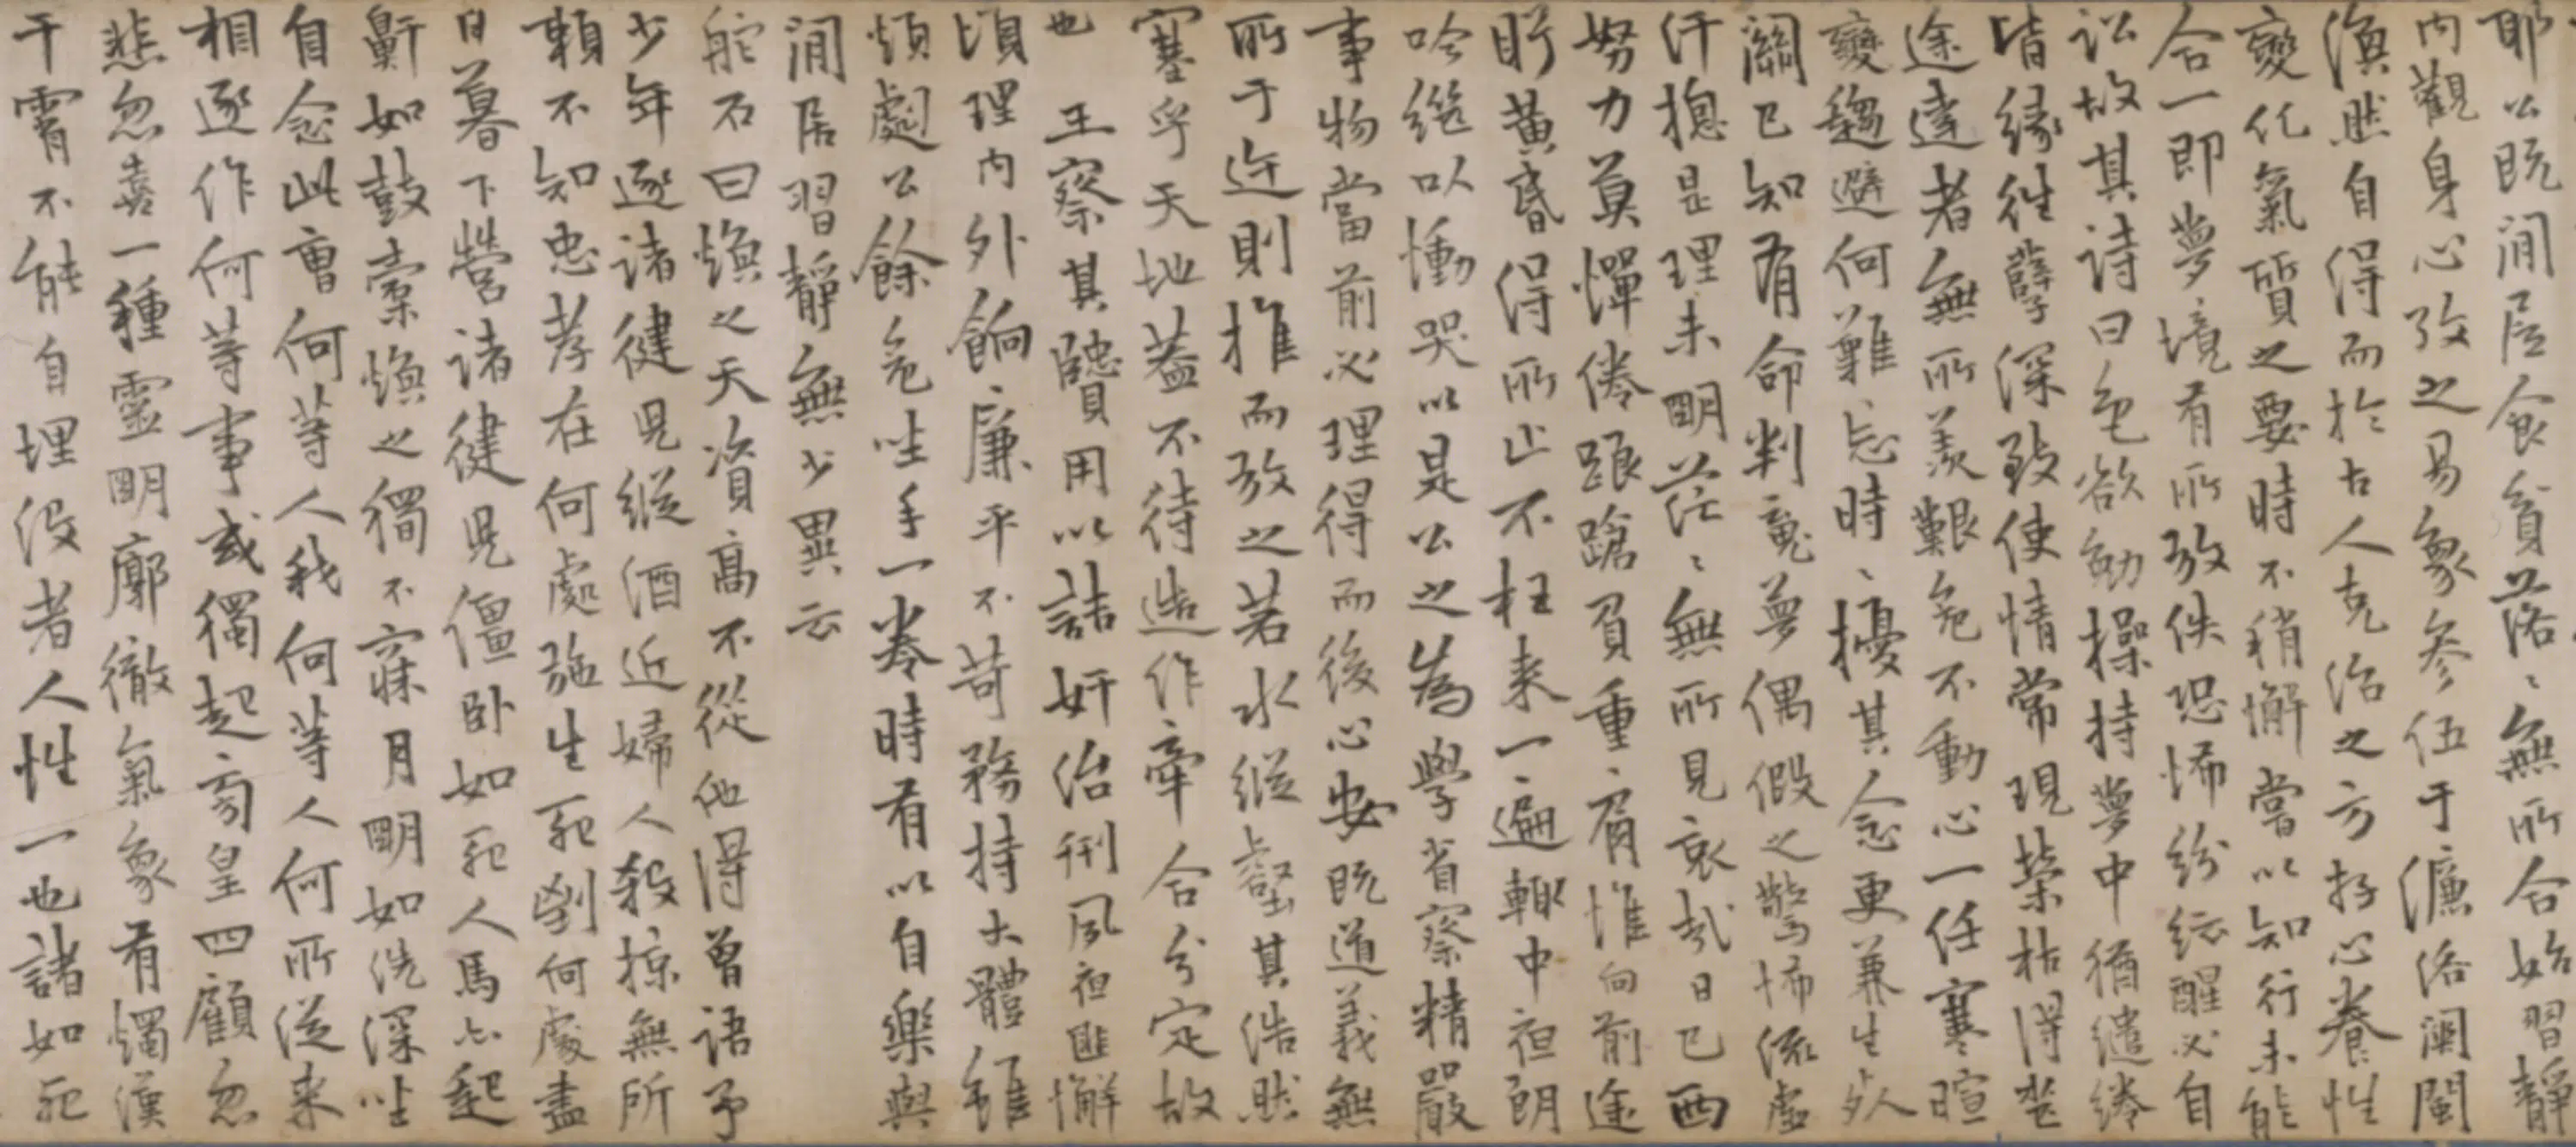 耶公既閒居食貧落〻無所合始習靜
內觀身心孜之易象參伍于濂洛關閩
渙然自得而於古人克治之方存心養性
變化氣質之要時不稍懈嘗以知行未能
合一即夢境有所放佚恐怖紛紜醒必自
訟故其詩曰色欲劬操持夢中猶繾綣
皆緣往孽深致使情常現榮枯得喪
途達者無所羨艱危不動心一任寒暄
變趨避何難〻忘時〻擾其念更兼生死
關已知有命判竟夢偶假之驚怖流虛
汗揔是理未明茫〻無所見哀哉日已西
努力莫憚倦踉蹌負重〻肩惟向前途
盱黃昏得所止不枉來一〻遍輒中夜朗
吟繼以慟哭以是公之為學省察精嚴
事物當前必理得而後心安既道義無
所于迕則推而放之若水縱壑其浩然
塞乎天地蓋不待造作牽合分定故
也 王察其聽用以詰奸治刑夙夜匪懈
頃理內外餉〻廉平不苛務持大體雖
煩劇公餘危坐手一卷時有以自樂與
閒居習靜無少異云
舵石曰煥之天資高不從他得曾語予
少年逐諸健兒縱酒近婦人殺掠無所
賴不知忠孝在何處施生死到何處盡
日暮下營諸健兒僵臥如死人馬亦起
鼾如鼓橐煥之獨不寐月明如洗深坐
自念此曹何等人我何等人何所從來
相逐作何等事或獨起旁皇四顧忽
悲忽喜一種靈明廓徹氣象有燭漢
干霄不能自埋沒者人性一也諸如死